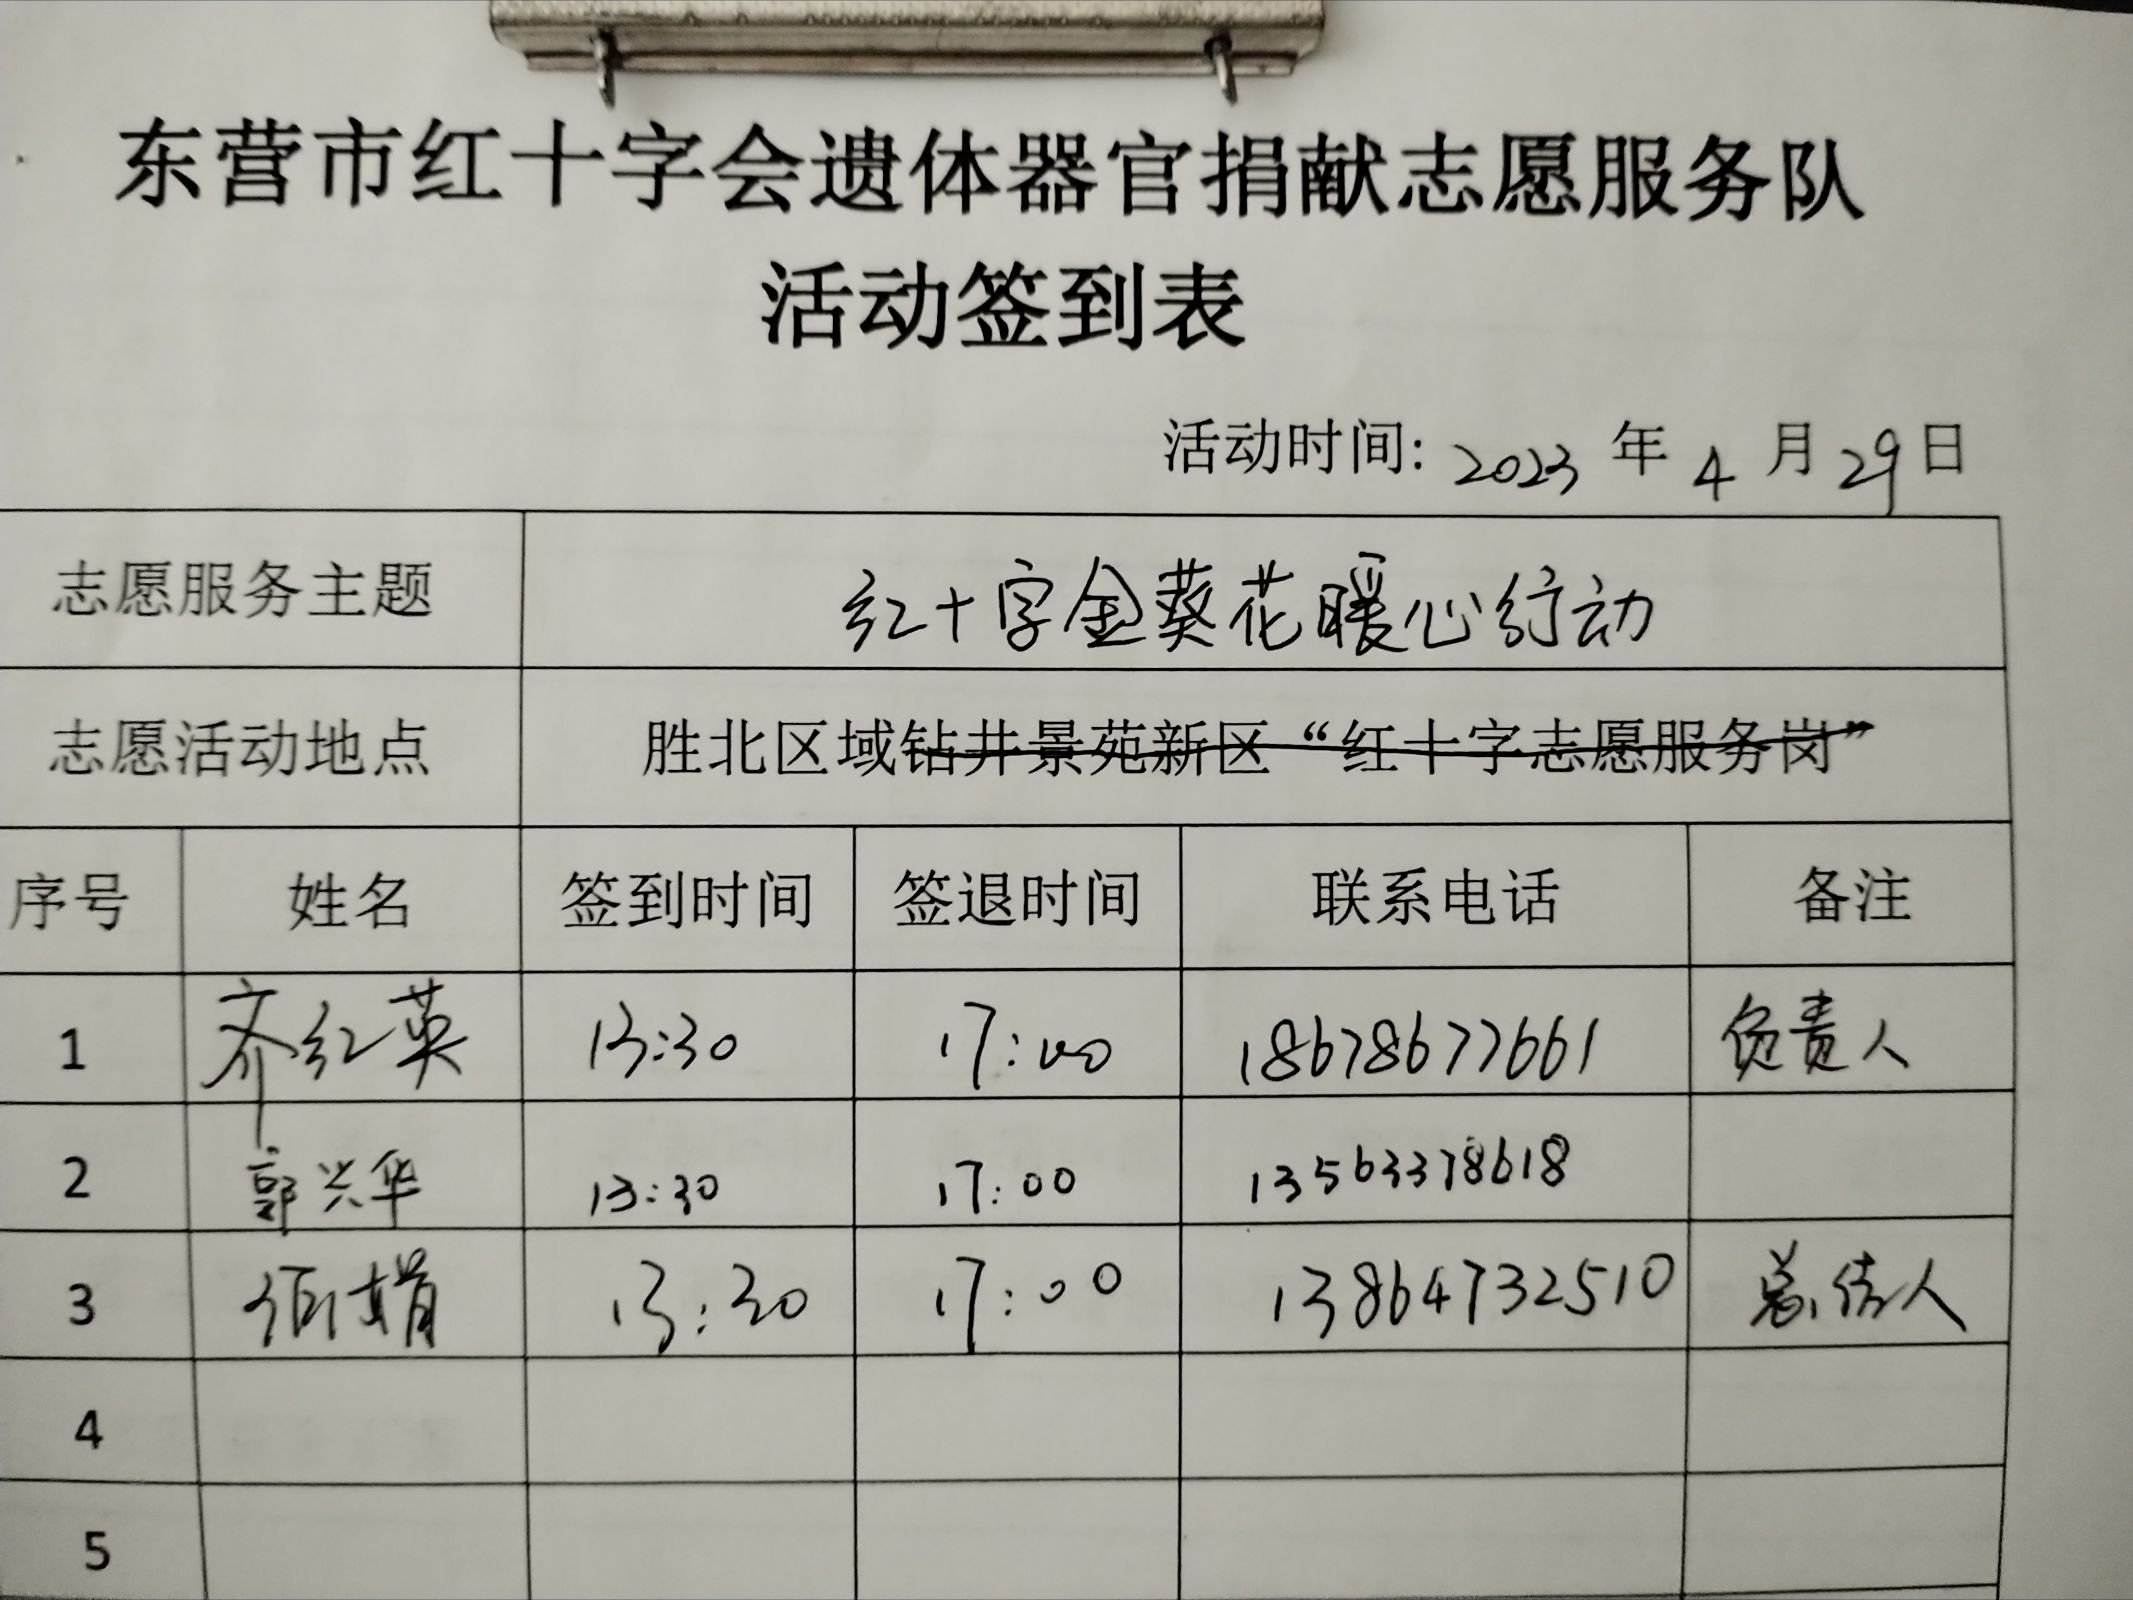 东营市红十字会遗体器官捐献志愿服务队
活动签到表
活动时间: 2023 年 4 月 29 日
志愿服务主题 红十字金葵花暖心行动
志愿活动地点 胜北区域钻井景苑新区“红十字志愿服务岗”
序号 姓名 签到时间 签退时间 联系电话 备注
1 齐红英 13:30 17:00 18678677661 负责人
2 郭兴华 13:30 17:00 13563378618
3 娟 13:30 17:00 13864732510 总结人
4
5